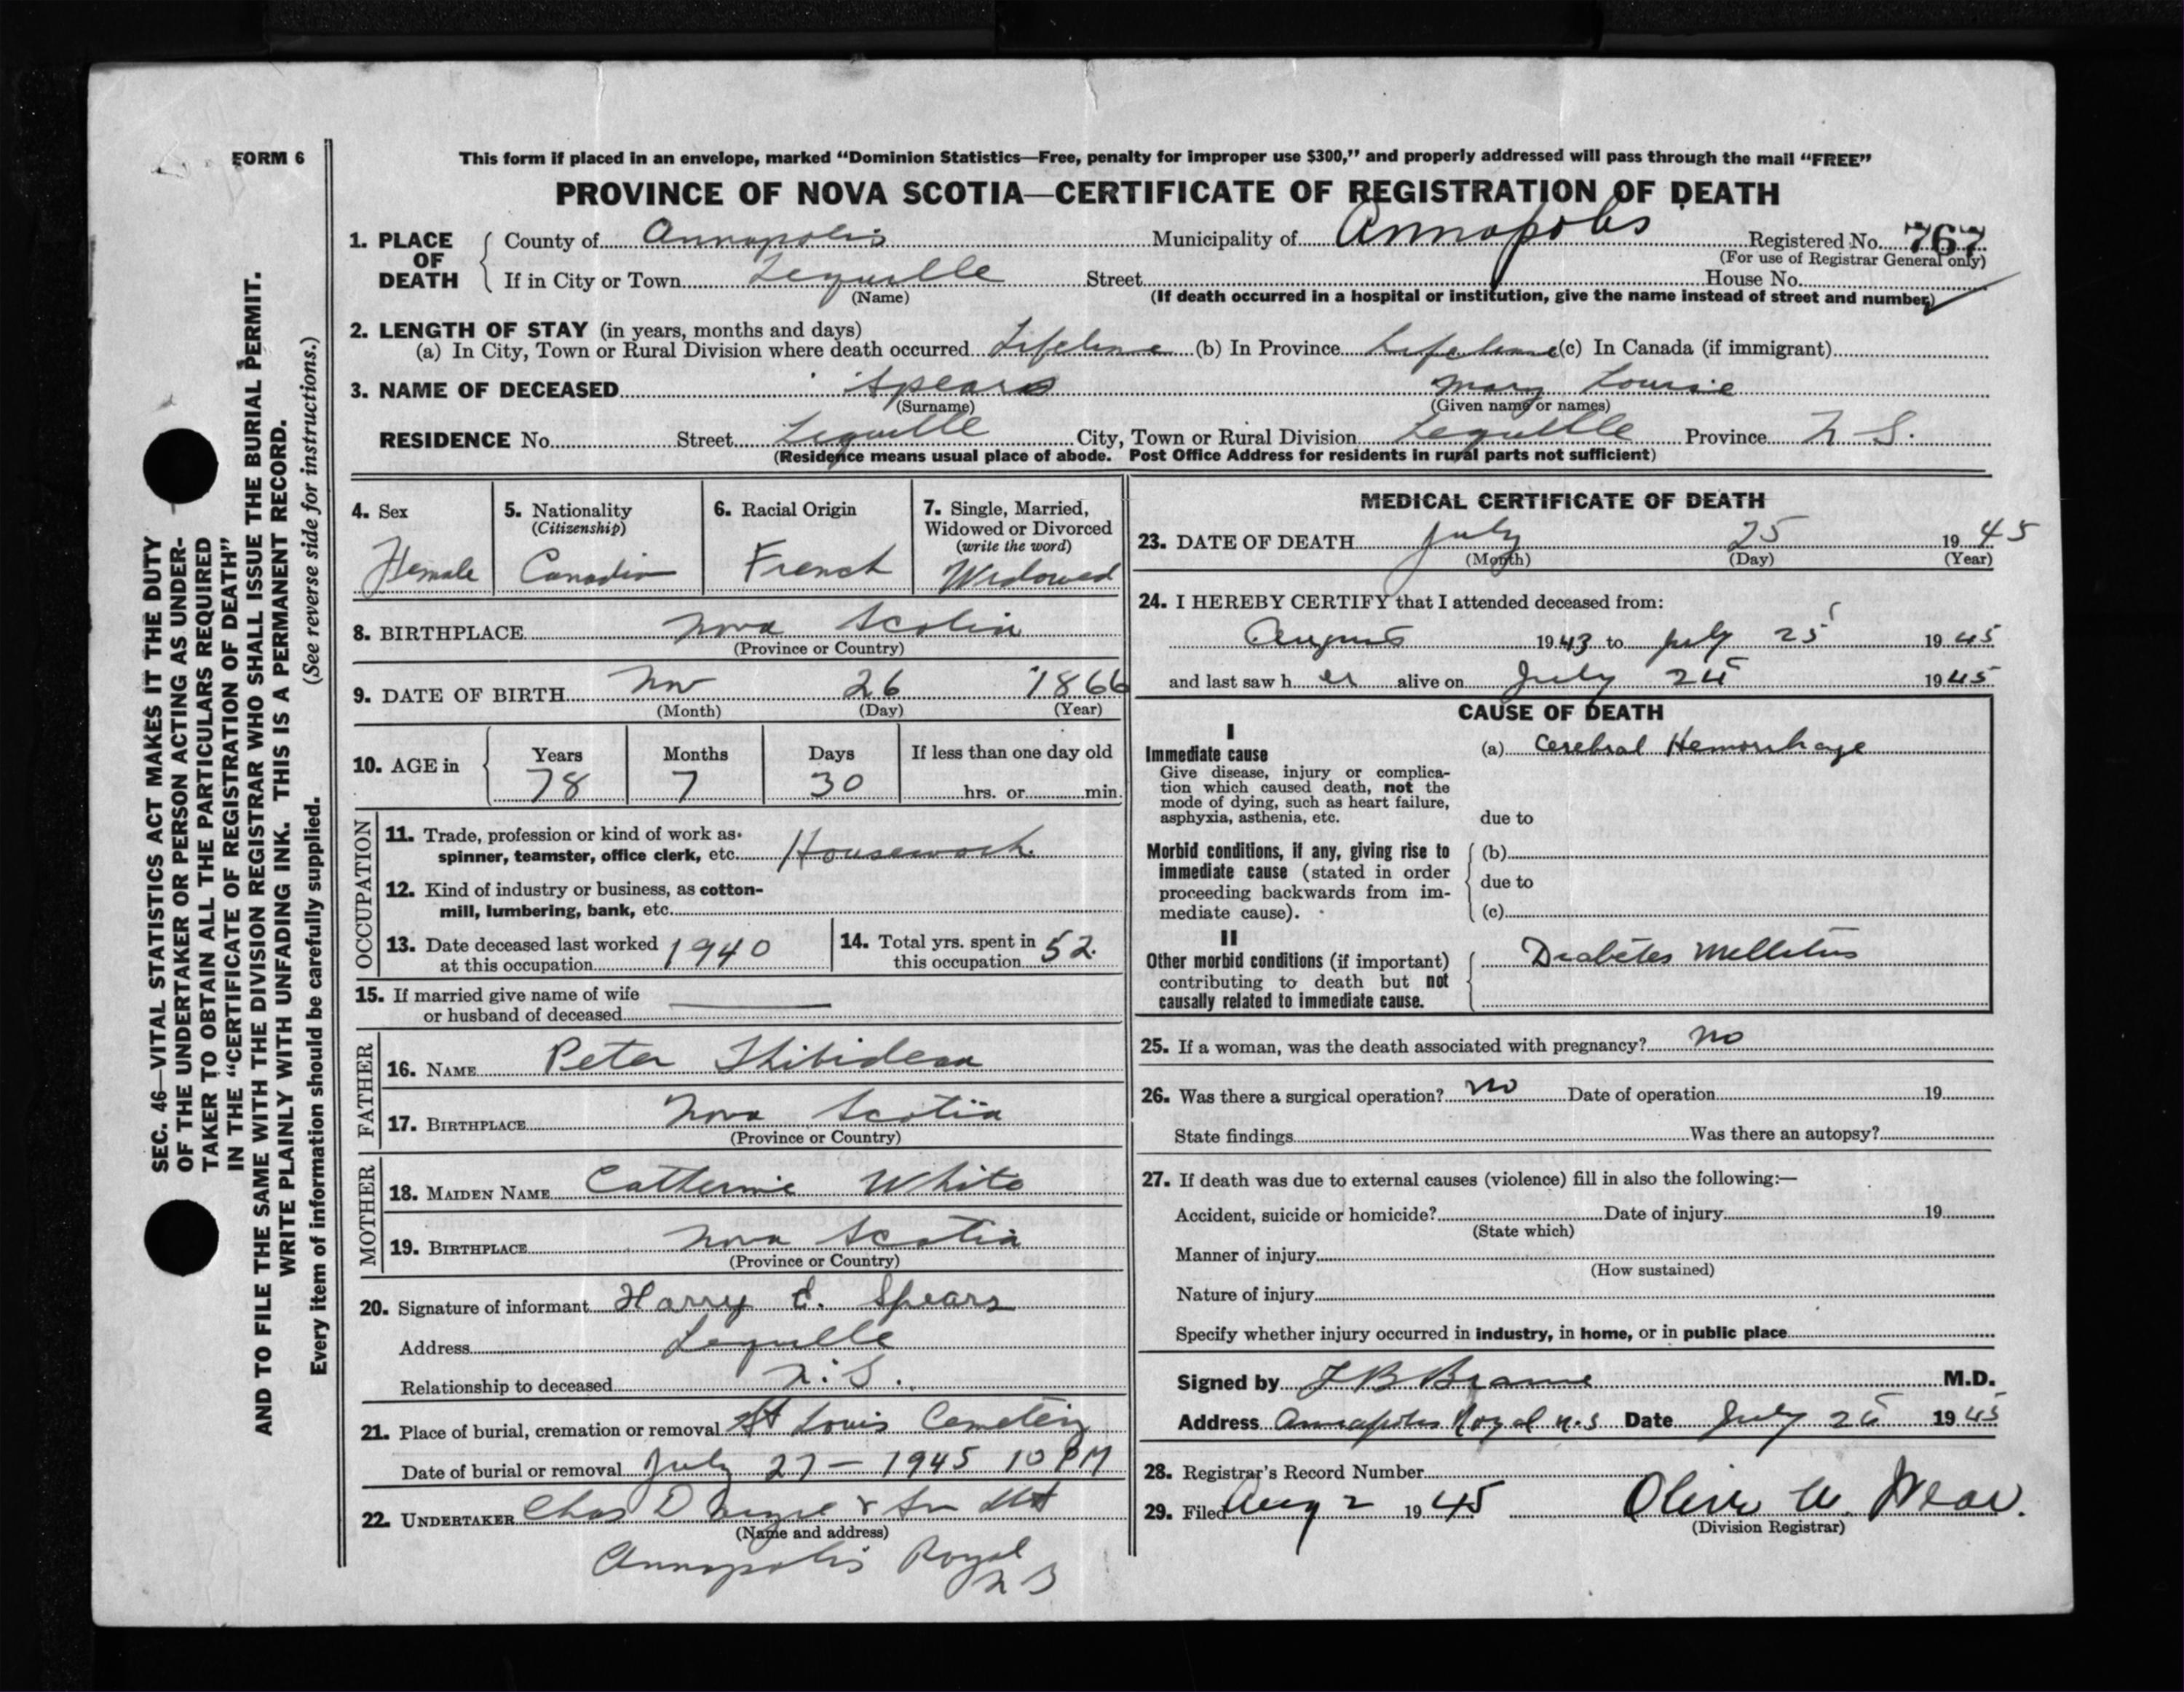 FORM 6
SEC. 46—VITAL STATISTICS ACT MAKES IT THE DUTY
OF THE UNDERTAKER OR PERSON ACTING AS UNDER-
TAKER TO OBTAIN ALL THE PARTICULARS REQUIRED
IN THE "CERTIFICATE OF REGISTRATION OF DEATH"
AND TO FILE THE SAME WITH THE DIVISION REGISTRAR WHO SHALL ISSUE THE BURIAL PERMIT.
WRITE PLAINLY WITH UNFADING INK. THIS IS A PERMANENT RECORD.
Every item of information should be carefully supplied. (See reverse side for instructions.)
This form if placed in an envelope, marked "Dominion Statistics—Free, penalty for improper use $300," and properly addressed will pass through the mail "FREE"
PROVINCE OF NOVA SCOTIA—CERTIFICATE OF REGISTRATION OF DEATH
1. PLACE OF DEATH County of Annapolis Municipality of Annapolis Registered No. 767
(For use of Registrar General only)
If in City or Town Lequille Street House No.
(Name) (If death occurred in a hospital or institution, give the name instead of street and number)
2. LENGTH OF STAY (in years, months and days)
(a) In City, Town or Rural Division where death occurred Lifetime (b) In Province Lifetime (c) In Canada (if immigrant)
3. NAME OF DECEASED Spears Mary Louise
(Surname) (Given name or names)
RESIDENCE No. Street Lequille City, Town or Rural Division Lequille Province N S.
(Residence means usual place of abode. Post Office Address for residents in rural parts not sufficient)
4. Sex
Female
5. Nationality
(Citizenship)
Canadian
6. Racial Origin
French
7. Single, Married,
Widowed or Divorced
(write the word)
Widowed
8. BIRTHPLACE Nova Scotia
(Province or Country)
9. DATE OF BIRTH Nov 26 1866
(Month) (Day) (Year)
10. AGE in Years Months Days If less than one day old
78 7 30 hrs. or min.
OCCUPATION
11. Trade, profession or kind of work as
spinner, teamster, office clerk, etc. Housework
12. Kind of industry or business, as cotton-
mill, lumbering, bank, etc.
13. Date deceased last worked
at this occupation 1940
14. Total yrs. spent in
this occupation 52
15. If married give name of wife
or husband of deceased
FATHER
16. NAME Peter Thibideau
17. BIRTHPLACE Nova Scotia
(Province or Country)
MOTHER
18. MAIDEN NAME Catherine White
19. BIRTHPLACE Nova Scotia
(Province or Country)
20. Signature of informant Harry E. Spears
Address Lequille
Relationship to deceased N. S.
21. Place of burial, cremation or removal St Louis Cemetery
Date of burial or removal July 27 — 1945 10 PM
22. UNDERTAKER Chas & Son
(Name and address)
Annapolis Royal
N S
MEDICAL CERTIFICATE OF DEATH
23. DATE OF DEATH July 25 1945
(Month) (Day) (Year)
24. I HEREBY CERTIFY that I attended deceased from:
August 1943 to July 25 1945
and last saw her alive on July 1945
CAUSE OF DEATH
I
Immediate cause
Give disease, injury or complica-
tion which caused death, not the
mode of dying, such as heart failure,
asphyxia, asthenia, etc.
(a) Cerebral Hemorrhage
due to
Morbid conditions, if any, giving rise to
immediate cause (stated in order
proceeding backwards from im-
mediate cause).
(b)
due to
(c)
II
Other morbid conditions (if important)
contributing to death but not
causally related to immediate cause.
Diabetes Mellitus
25. If a woman, was the death associated with pregnancy? no
26. Was there a surgical operation? no Date of operation 19
State findings Was there an autopsy?
27. If death was due to external causes (violence) fill in also the following:—
Accident, suicide or homicide? Date of injury 19
(State which)
Manner of injury
(How sustained)
Nature of injury
Specify whether injury occurred in industry, in home, or in public place
Signed by M.D.
Address Annapolis Royal N.S Date July 1945
28. Registrar's Record Number
29. Filed Aug 2 1945
(Division Registrar)